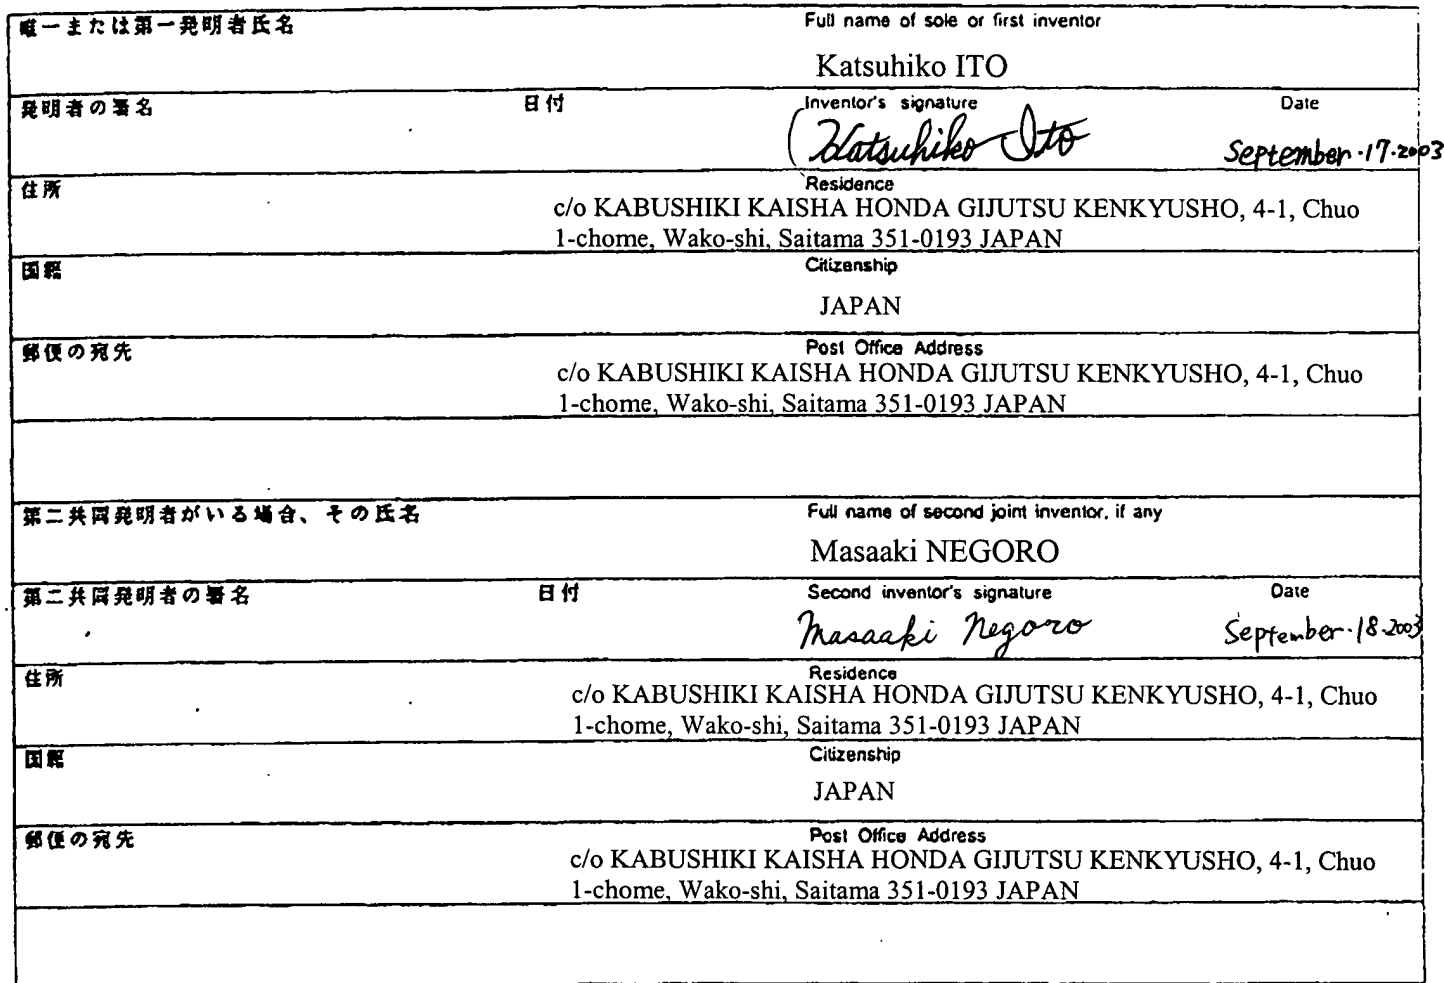 唯一または第一発明者氏名 Full name of sole or first inventor
Katsuhiko ITO
発明者の署名 日付 Inventor's signature Date
Katsuhiko Ito September·17·2003
住所 Residence
c/o KABUSHIKI KAISHA HONDA GIJUTSU KENKYUSHO, 4-1, Chuo
1-chome, Wako-shi, Saitama 351-0193 JAPAN
国籍 Citizenship
JAPAN
郵便の宛先 Post Office Address
c/o KABUSHIKI KAISHA HONDA GIJUTSU KENKYUSHO, 4-1, Chuo
1-chome, Wako-shi, Saitama 351-0193 JAPAN
第二共同発明者がいる場合、その氏名 Full name of second joint inventor, if any
Masaaki NEGORO
第二共同発明者の署名 日付 Second inventor's signature Date
Masaaki Negoro September·18·2003
住所 Residence
c/o KABUSHIKI KAISHA HONDA GIJUTSU KENKYUSHO, 4-1, Chuo
1-chome, Wako-shi, Saitama 351-0193 JAPAN
国籍 Citizenship
JAPAN
郵便の宛先 Post Office Address
c/o KABUSHIKI KAISHA HONDA GIJUTSU KENKYUSHO, 4-1, Chuo
1-chome, Wako-shi, Saitama 351-0193 JAPAN